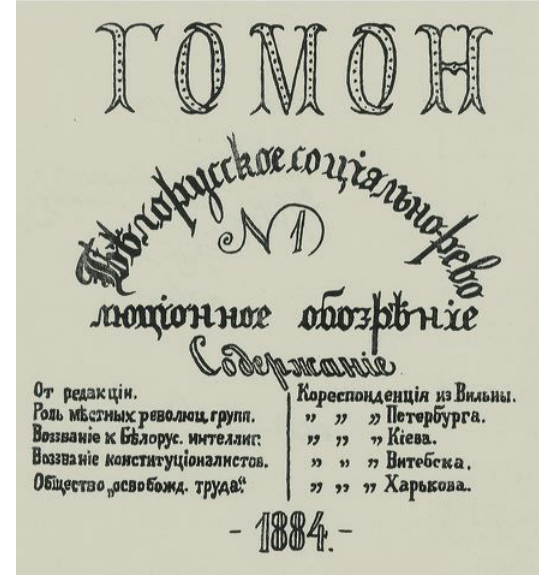 ГОМОН
Бѣлорусское соціяльно-рево
№1
люціонное обозрѣніе
Содержаніе
От редакціи.
Роль мѣстных революц. групп.
Воззваніе к Бѣлорус. интеллиг.
Воззваніе конституціоналистов.
Общество „освобожд. труда“.
Кореспонденція из Вильны.
„ „ „ Петербурга.
„ „ „ Кіева.
„ „ „ Витебска.
„ „ „ Харькова.
- 1884. -